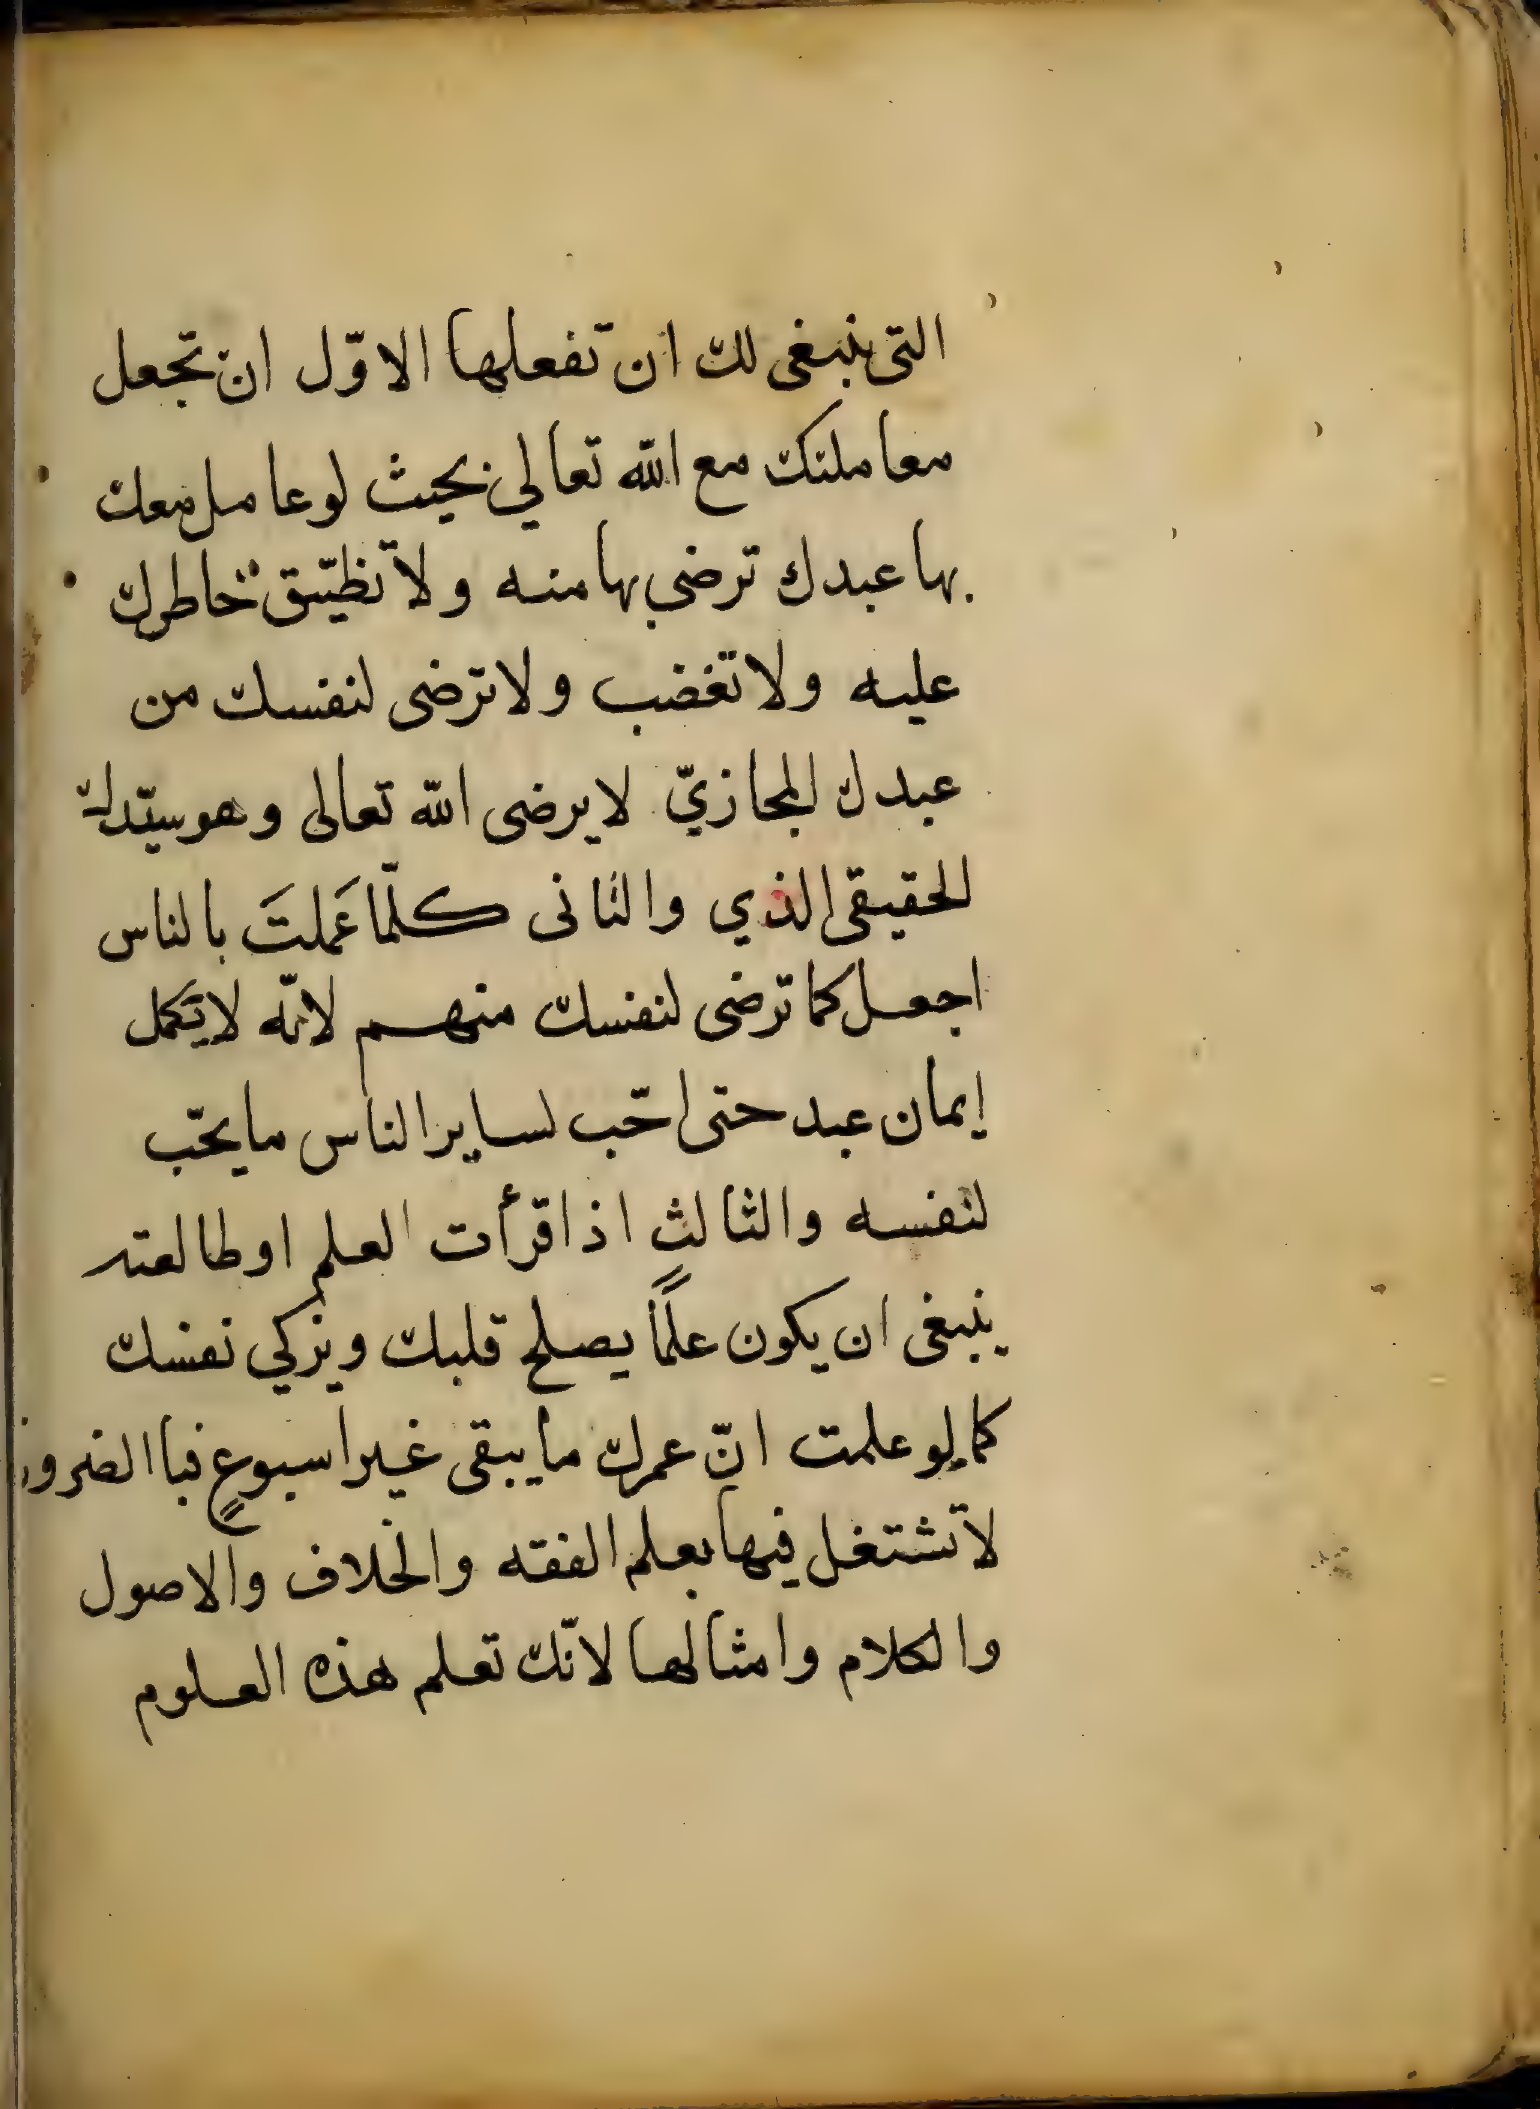 التى ينبغى لك ان تفعلها الاوّل ان تجعل
معاملتك مع الله تعالي بحيث لو عامل معك
بها عبدك ترضي بها منه ولا تظيّق خاطرك
عليه ولا تغضب ولا ترضى لنفسك من
عبدك المجازيّ لا يرضى الله تعالى وهو سيّدك
الحقيقى الذي والثانى كلّما عَملتَ بالناس
اجعل كما ترضى لنفسك منهم لانّه لا يَكمل
إيمان عبد حتى احّب لساير الناس ما يحّب
لنفسه والثالثِ اذا قرأت العلم او طالعته
ينبغى ان يكون علمًا يصلح قلبك ويزكي نفسك
كما لو علمت انّ عمرك ما يبقى غير اسبوعٍ فباالضرورة
لا تشتغل فيها بعلم الفقه والخلاف والاصول
والكلام وامثالها لانّك تعلم هذه العلوم